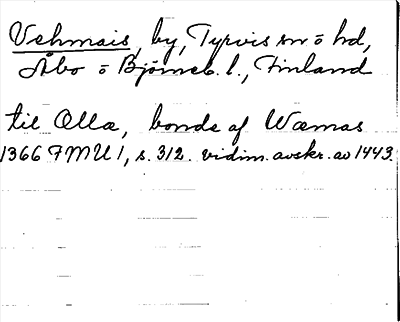 Vehmais, by, Tyrvis sn o hd,
Åbo o Björneb. l., Finland
til Olla, bonde af Wæmas
1366 FMU 1, s. 312. vidim. avskr. av 1443.